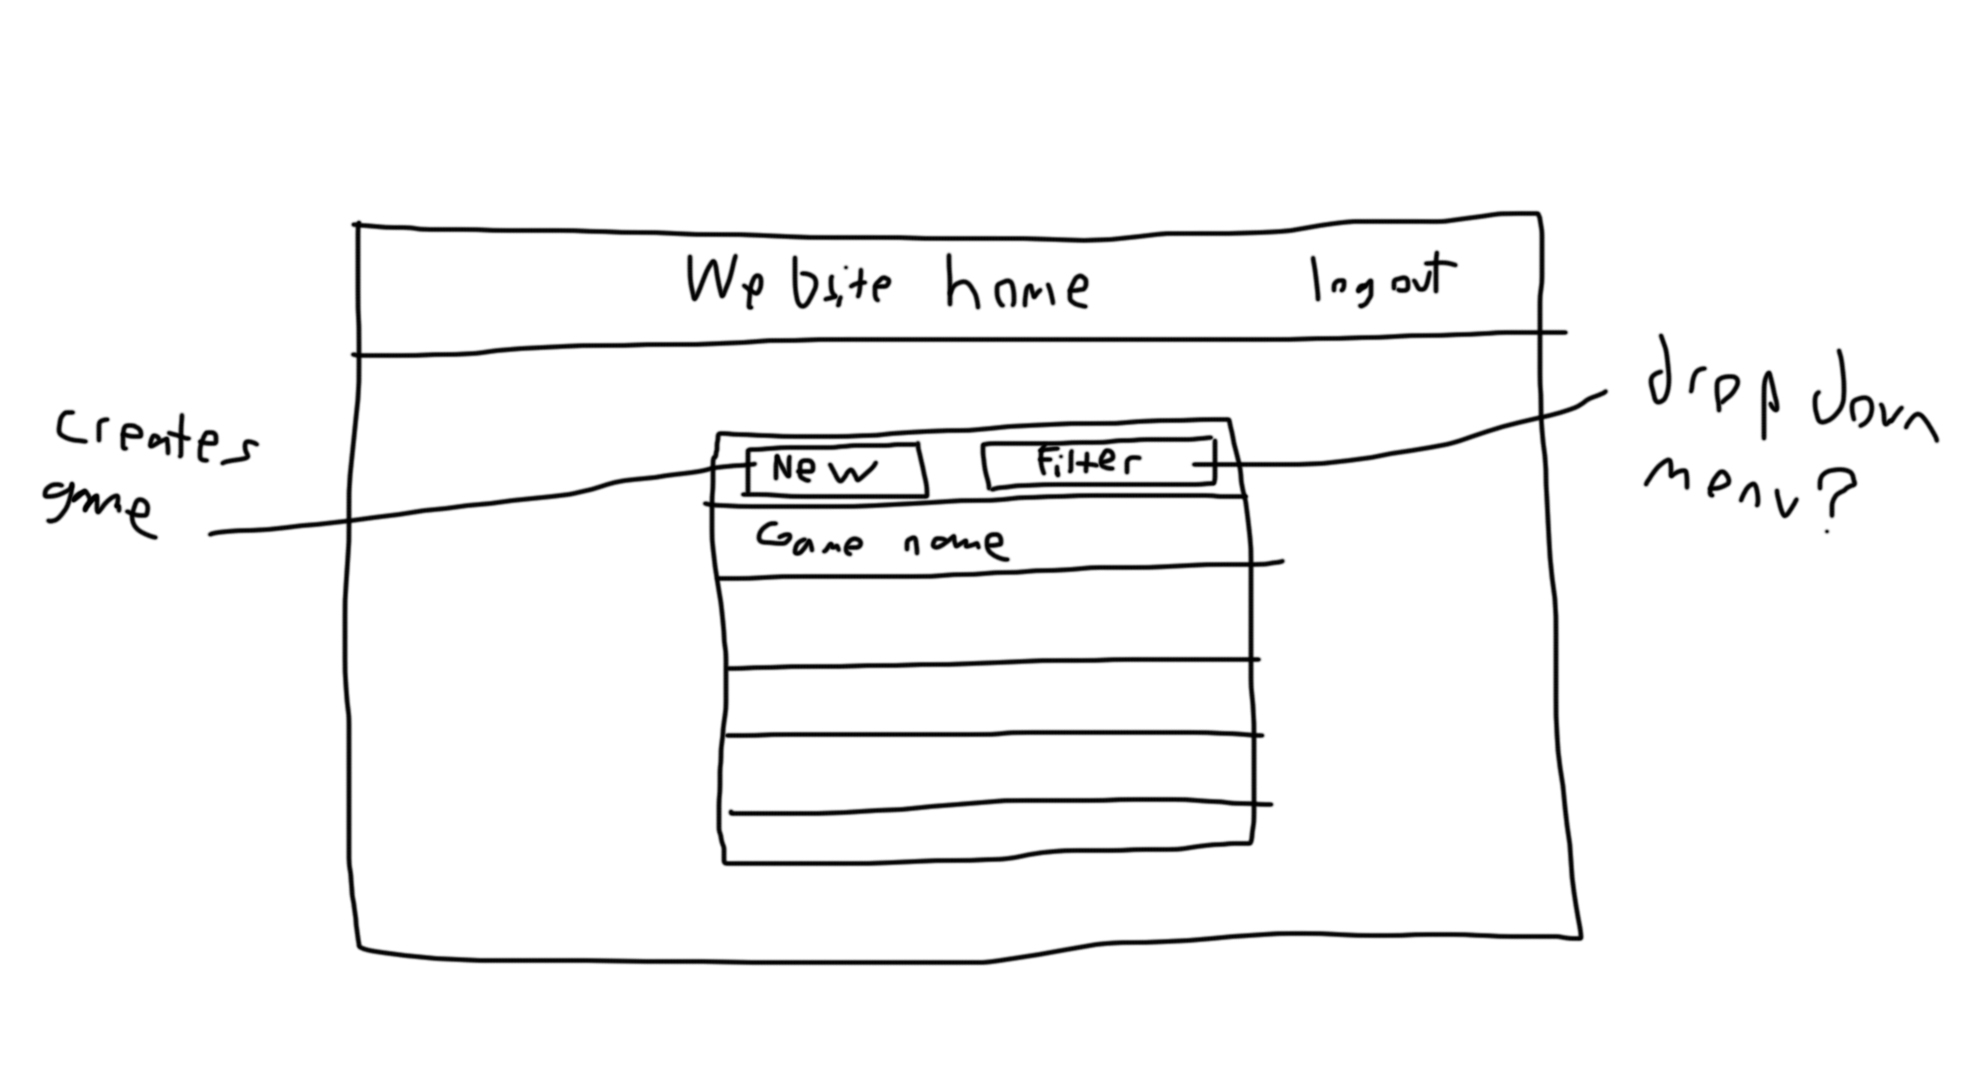 Website home
logout
creates
game
New
Filter
drop down
menu?
Game name